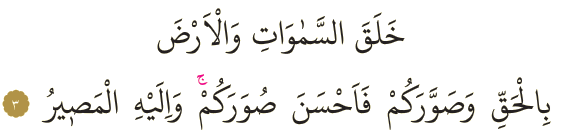 خَلَقَ السَّمٰوَاتِ وَالْاَرْضَ
بِالْحَقِّ وَصَوَّرَكُمْ فَاَحْسَنَ صُوَرَكُمْۚ وَاِلَيْهِ الْمَص۪يرُ ٣